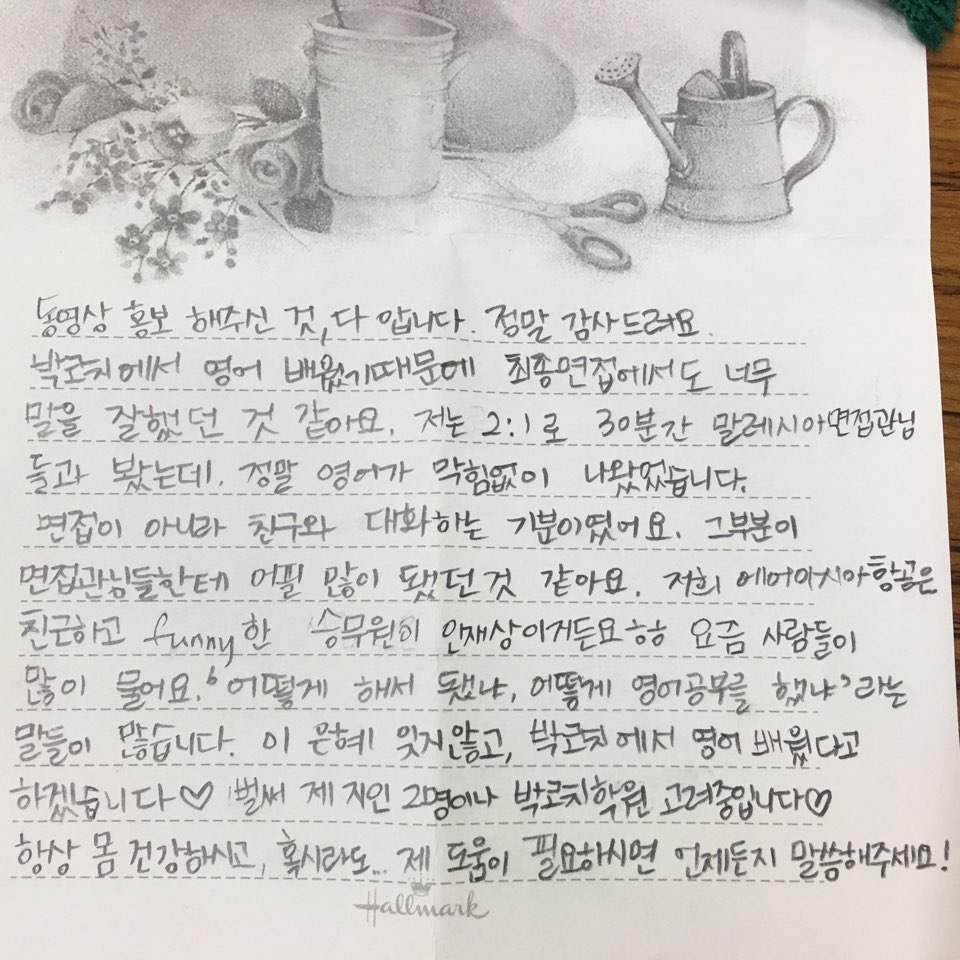 동영상 홍보 해주신 것, 다 압니다. 정말 감사드려요.
박코치에서 영어 배웠기때문에 최종면접에서도 너무
말을 잘했던 것 같아요. 저는 2:1로 30분간 말레시아면접관님
들과 봤는데. 정말 영어가 막힘없이 나왔었습니다.
면접이 아니라 친구와 대화하는 기분이였어요. 그부분이
면접관님들한테 어필 많이 됐던것 같아요. 저희 에어아시아항공은
친근하고 funny한 승무원이 인재상이거든요ㅎㅎ 요즘 사람들이
많이 물어요. '어떻게 해서 됐냐, 어떻게 영어공부를 했냐' 라는
말들이 많습니다. 이 은혜 잊지않고, 박코치에서 영어 배웠다고
하겠습니다♡ 벌써 제 지인 2명이나 박코치학원 고려중입니다♡
항상 몸 건강하시고, 혹시라도... 제 도움이 필요하시면 언제든지 말씀해주세요!
Hallmark